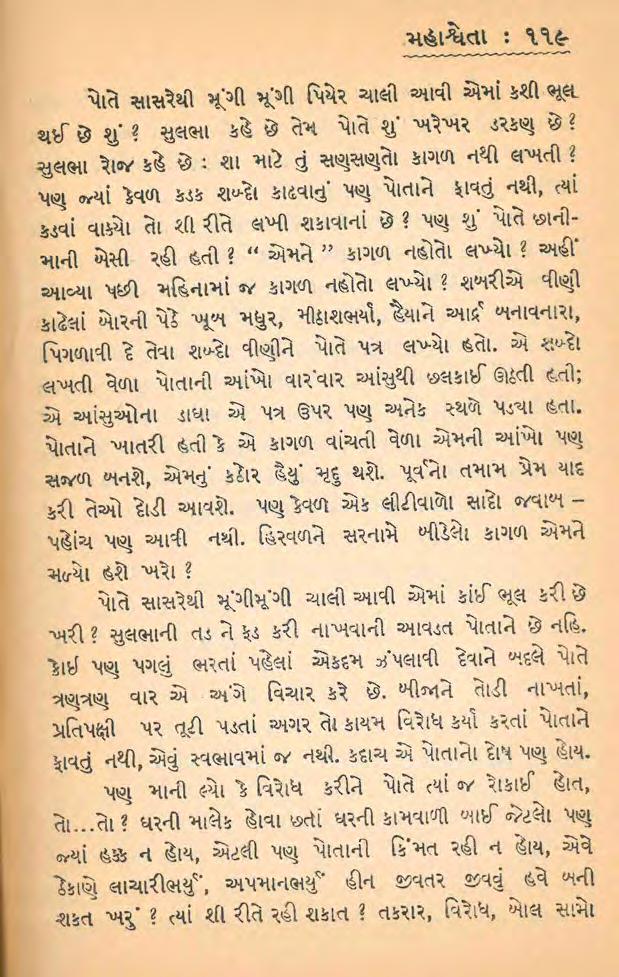 મહાશ્વેતા : ૧૧૯
પોતે સાસરેથી મૂંગી મૂંગી પિયેર ચાલી આવી એમાં કશી ભૂલ
થઈ છે શું ? સુલભા કહે છે તેમ પોતે શું ખરેખર ડરકણ છે ?
સુલભા રોજ કહે છે : શા માટે તું સણસણતો કાગળ નથી લખતી ?
પણ જ્યાં કેવળ કડક શબ્દો કાઢવાનું પણ પોતાને ફાવતું નથી, ત્યાં
કડવાં વાક્યો તો શી રીતે લખી શકાવાનાં છે ? પણ શું પોતે છાની-
માની બેસી રહી હતી ? “ એમને ” કાગળ નહોતો લખ્યો ? અહીં
આવ્યા પછી મહિનામાં જ કાગળ નહોતો લખ્યો ? શબરીએ વીણી
કાઢેલાં બોરની પેઠે ખૂબ મધુર, મીઠાશભર્યાં, હૈયાને આર્દ્ર બનાવનારા,
પિગળાવી દે તેવા શબ્દો વીણીને પોતે પત્ર લખ્યો હતો. એ શબ્દો
લખતી વેળા પોતાની આંખો વારંવાર આંસુથી છલકાઈ ઊઠતી હતી;
એ આંસુઓના ડાઘા એ પત્ર ઉપર પણ અનેક સ્થળે પડ્યા હતા.
પોતાને ખાતરી હતી કે એ કાગળ વાંચતી વેળા એમની આંખો પણ
સજળ બનશે, એમનું કઠોર હૈયું મૃદુ થશે. પૂર્વનો તમામ પ્રેમ યાદ
કરી તેઓ દોડી આવશે. પણ કેવળ એક લીટીવાળો સાદો જવાબ –
પહોંચ પણ આવી નથી. હિરવળને સરનામે બીડેલો કાગળ એમને
મળ્યો હશે ખરો ?
પોતે સાસરેથી મૂંગીમૂંગી ચાલી આવી એમાં કાંઈ ભૂલ કરી છે
ખરી ? સુલભાની તડ ને ફડ કરી નાખવાની આવડત પોતાને છે નહિ.
કોઈ પણ પગલું ભરતાં પહેલાં એકદમ ઝંપલાવી દેવાને બદલે પોતે
ત્રણત્રણ વાર એ અંગે વિચાર કરે છે. બીજાને તોડી નાખતાં,
પ્રતિપક્ષી પર તૂટી પડતાં અગર તો કાયમ વિરોધ કર્યા કરતાં પોતાને
ફાવતું નથી, એવું સ્વભાવમાં જ નથી. કદાચ એ પોતાનો દોષ પણ હોય.
પણ માની લ્યો કે વિરોધ કરીને પોતે ત્યાં જ રોકાઈ હોત,
તો...તો ? ઘરની માલેક હોવા છતાં ઘરની કામવાળી બાઈ જેટલો પણ
જ્યાં હક્ક ન હોય, એટલી પણ પોતાની કિંમત રહી ન હોય, એવે
ઠેકાણે લાચારીભર્યું, અપમાનભર્યું હીન જીવતર જીવવું હવે બની
શકત ખરું ? ત્યાં શી રીતે રહી શકાત ? તકરાર, વિરોધ, બોલ સામો